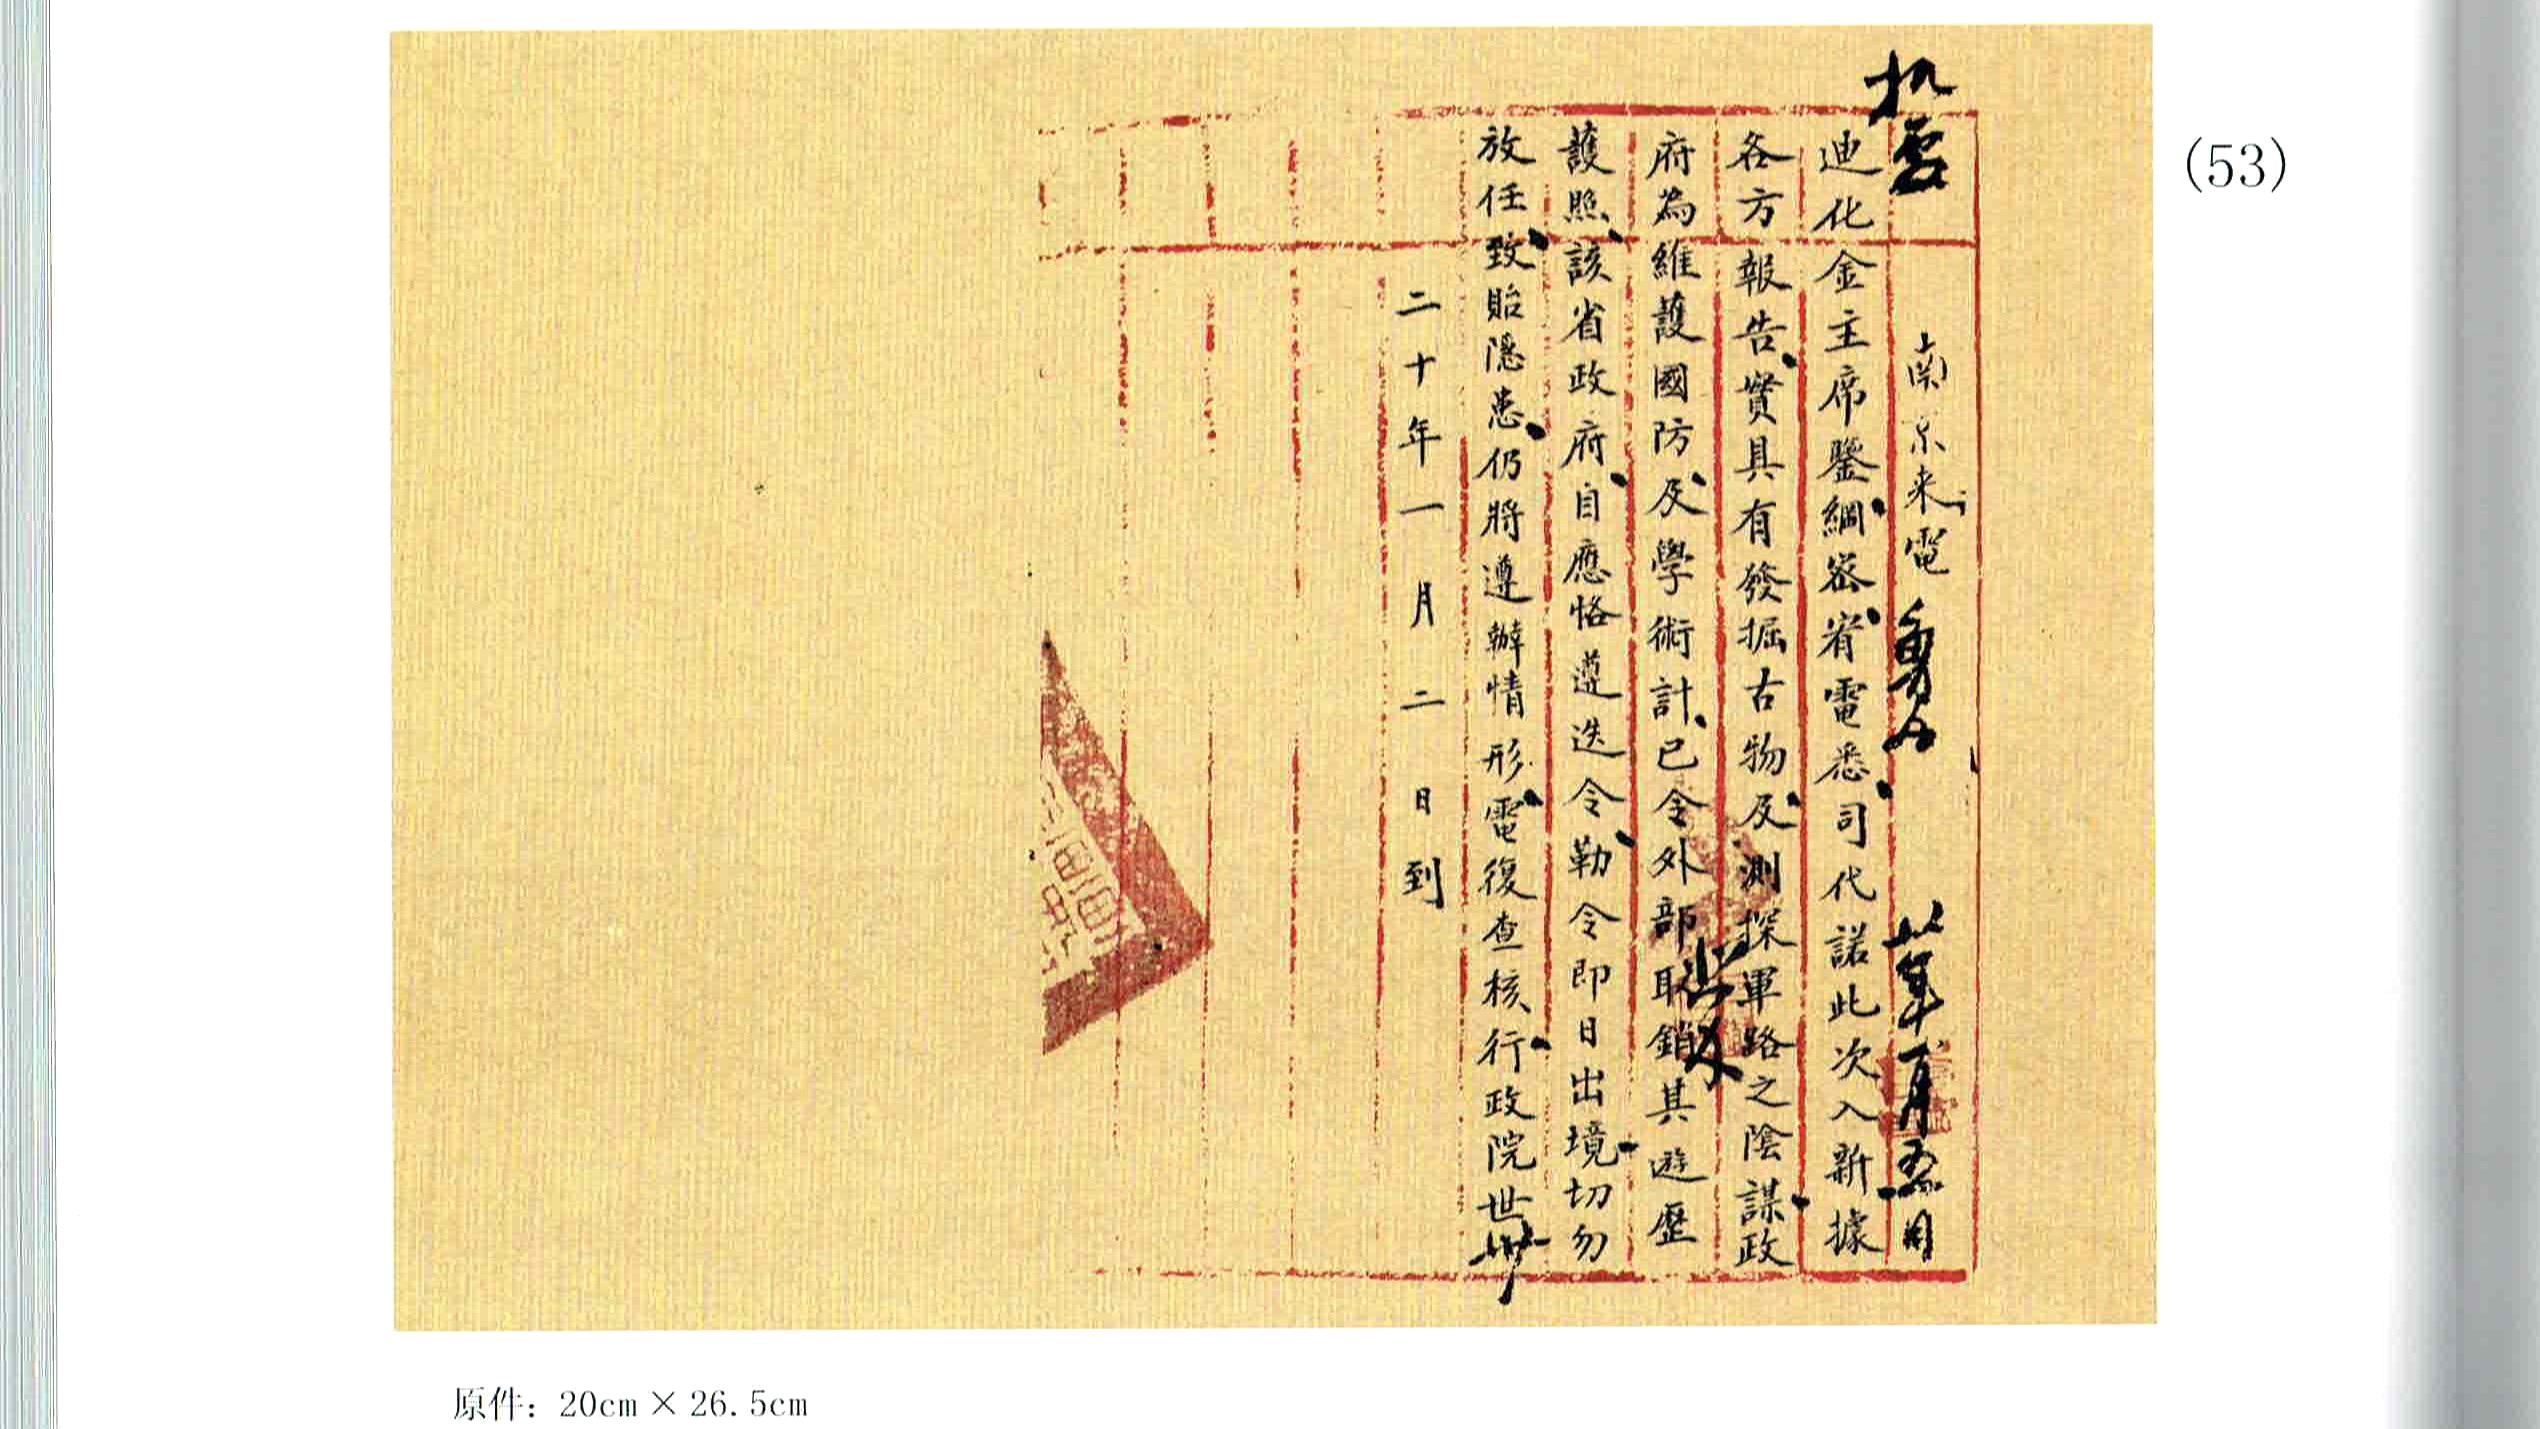 (53)
南京来電
迪化金主席鑒綱密宥電悉司代諾此次入新據
各方報告實具有發掘古物及測探軍路之陰謀政
府為維護國防及學術計已令外部取銷其遊歷
護照該省政府自應恪遵迭令勒令即日出境切勿
放任致貽隱患仍將遵辦情形電復查核行政院世
二十年一月二日到
原件：20cm × 26.5cm